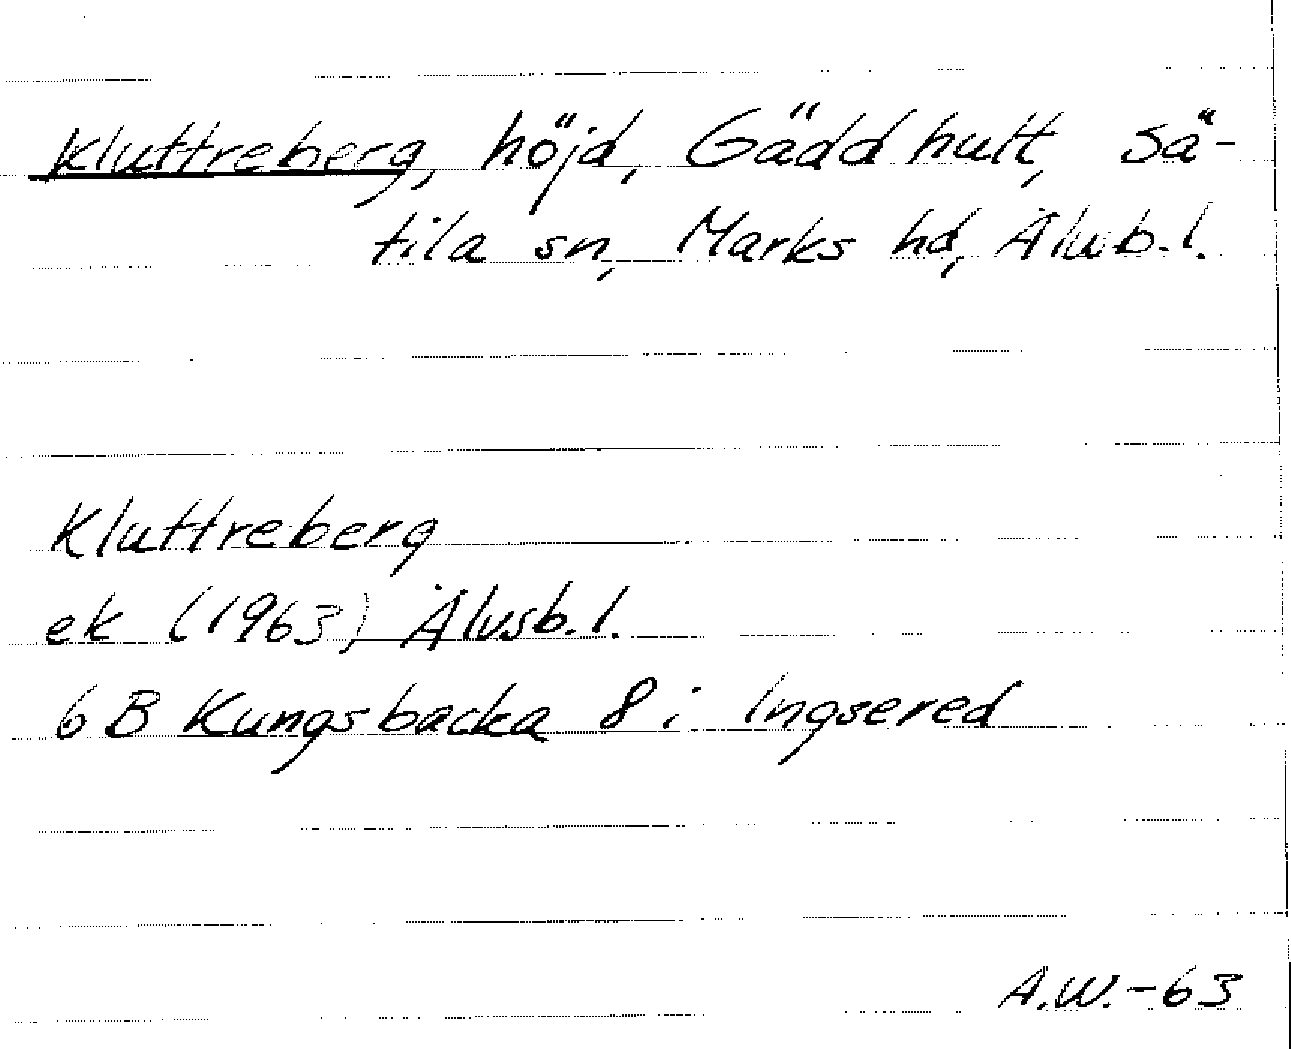 Kluttreberg, höjd, Gäddhult, Sä-
tila sn, Marks hd, Älvsb.l.
Kluttreberg
ek (1963) Älvsb.l.
6 B Kungsbacka 8 i Ingsered
A.W.-63